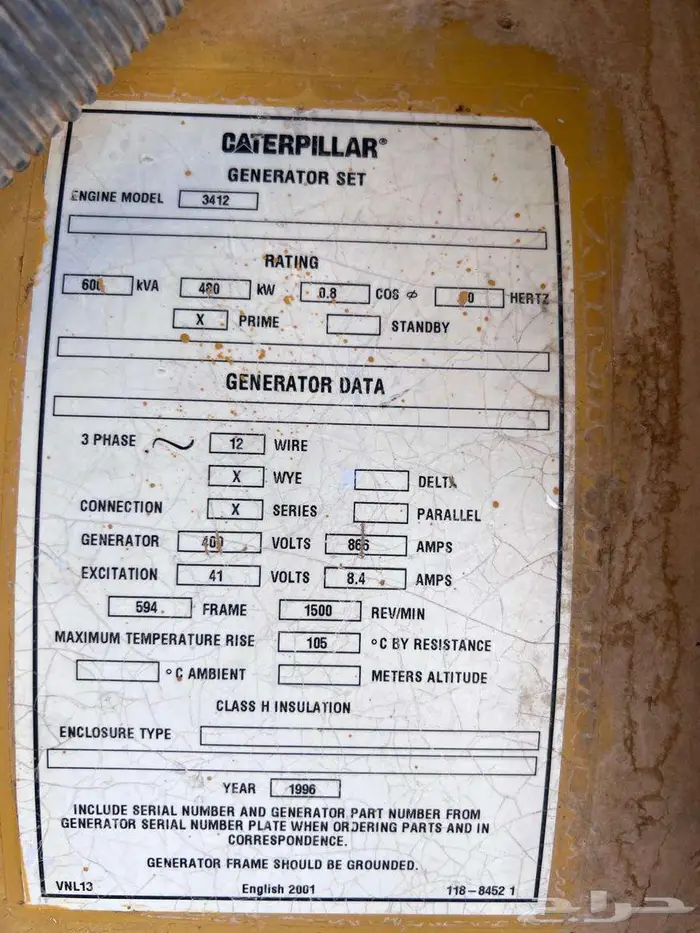 CATERPILLAR®
GENERATOR SET
ENGINE MODEL 3412
RATING
600 kVA 480 kW 0.8 COS ø HERTZ
X PRIME STANDBY
GENERATOR DATA
3 PHASE ~ 12 WIRE
X WYE DELTA
CONNECTION X SERIES PARALLEL
GENERATOR 400 VOLTS 866 AMPS
EXCITATION 41 VOLTS 8.4 AMPS
594 FRAME 1500 REV/MIN
MAXIMUM TEMPERATURE RISE 105 °C BY RESISTANCE
°C AMBIENT METERS ALTITUDE
CLASS H INSULATION
ENCLOSURE TYPE
YEAR 1996
INCLUDE SERIAL NUMBER AND GENERATOR PART NUMBER FROM
GENERATOR SERIAL NUMBER PLATE WHEN ORDERING PARTS AND IN
CORRESPONDENCE.
GENERATOR FRAME SHOULD BE GROUNDED.
VNL13 English 2001 118-8452 1
حراج